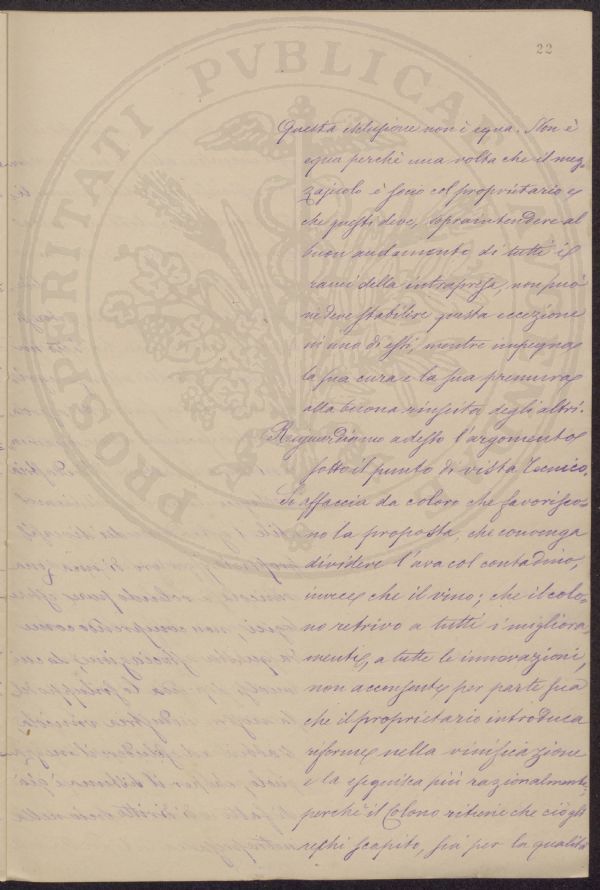 22
PROSPERITATI PVBLICAE
Questa esclusione non è equa. Non è
equa perchè una volta che il mez-
zajuolo è socio col proprietario e
che questi deve, sopraintendere al
buon andamento di tutti i
rami della intrapresa, non può
vedere stabilire questa eccezione
in una di essi, mentre impegna
la sua cura e la sua premura
alla buona riuscita degli altri.
Riguardiamo adesso l'argomento
sotto il punto di vista tecnico.
Si affaccia da coloro che favorisco-
no la proposta, che convenga
dividere l'uva col contadino,
invece che il vino; che il colo-
no retrivo a tutti i migliora-
menti, a tutte le innovazioni,
non acconsente per parte sua
che il proprietario introduca
riforme nella vinificazione
e la eseguisca più razionalmente,
perchè il Colono ritiene che ciò gli
rechi scapito, sia per la qualità